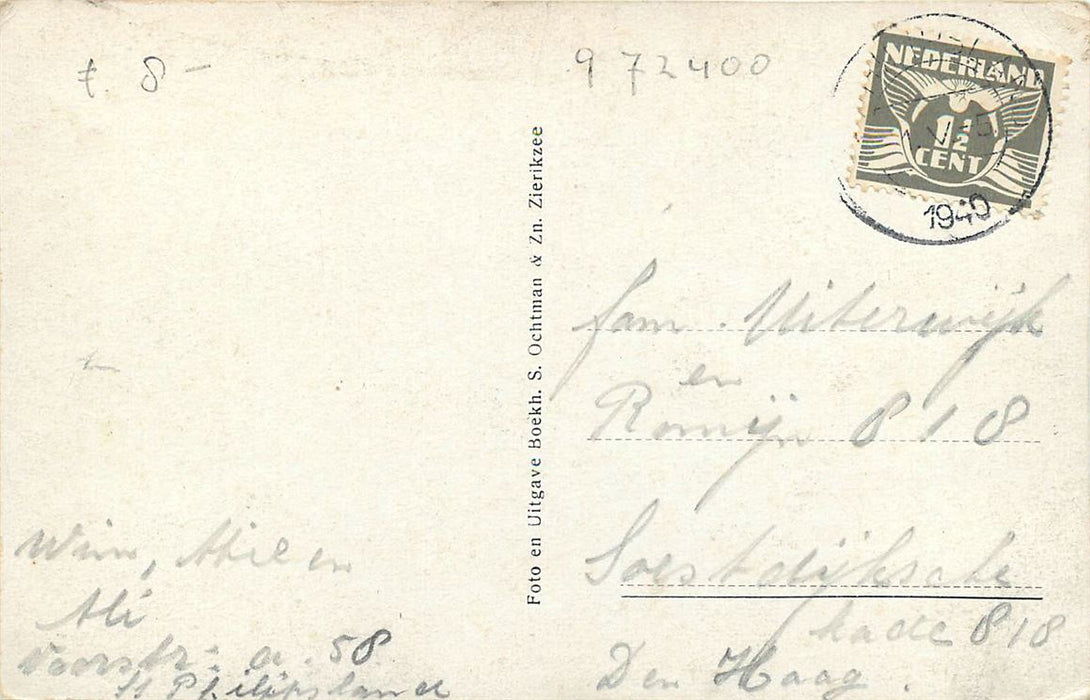 f 8 -
972400
NEDERLAND
1½
CENT
1940
Foto en Uitgave Boekh. S. Ochtman & Zn. Zierikzee
fam. Uiterwijk
en
Romijn 818
Soestdijksche
kade 818
Den Haag.
Wim, en
Ali
Voorstr: a. 58
St Philipsland